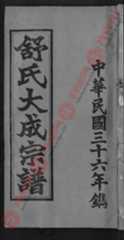 中華民國三十六年鐫
舒氏大成宗譜